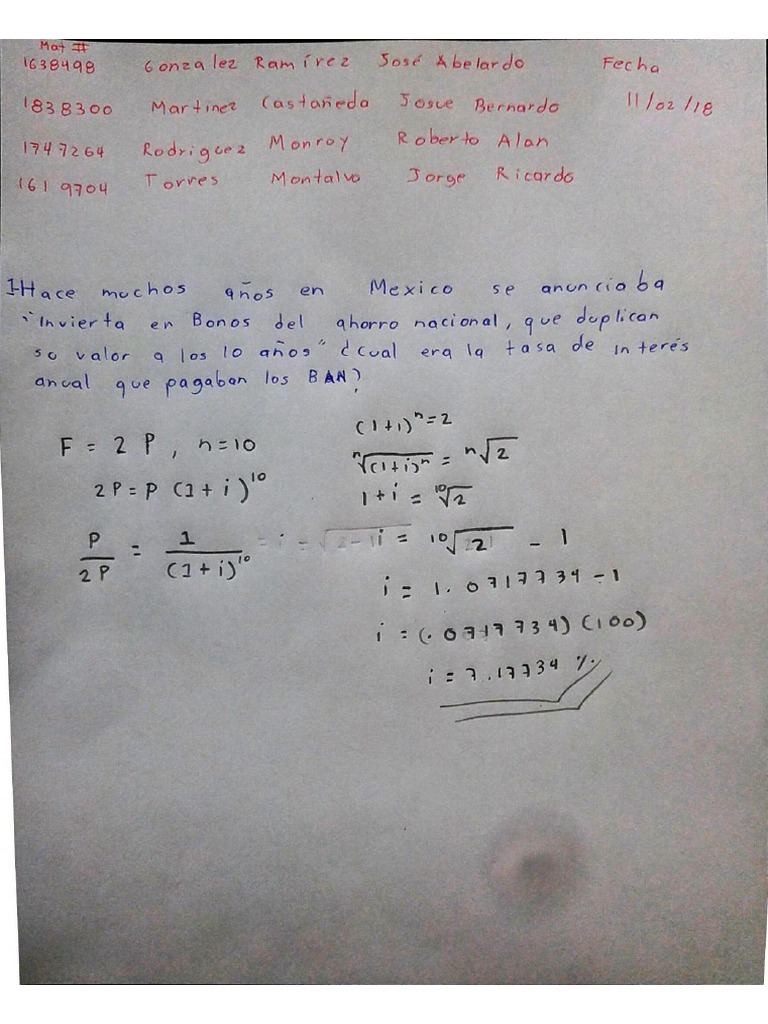 Mat #
1638498 Gonzalez Ramírez José Abelardo Fecha
1838300 Martinez Castañeda Josue Bernardo 11/02/18
1747264 Rodriguez Monroy Roberto Alan
1619704 Torres Montalvo Jorge Ricardo
1-Hace muchos años en Mexico se anunciaba
"Invierta en Bonos del ahorro nacional, que duplican
su valor a los 10 años" ¿cual era la tasa de interés
anual que pagaban los BAN?
F = 2 P, n=10
2P = P (1+i)^10
P/2P = 1/(1+i)^10
(1+i)^n = 2
ⁿ√(1+i)^n = ⁿ√2
1+i = ¹⁰√2
i = ¹⁰√2 - 1
i = 1.0717734 - 1
i = (.0717734) (100)
i = 7.17734 %.